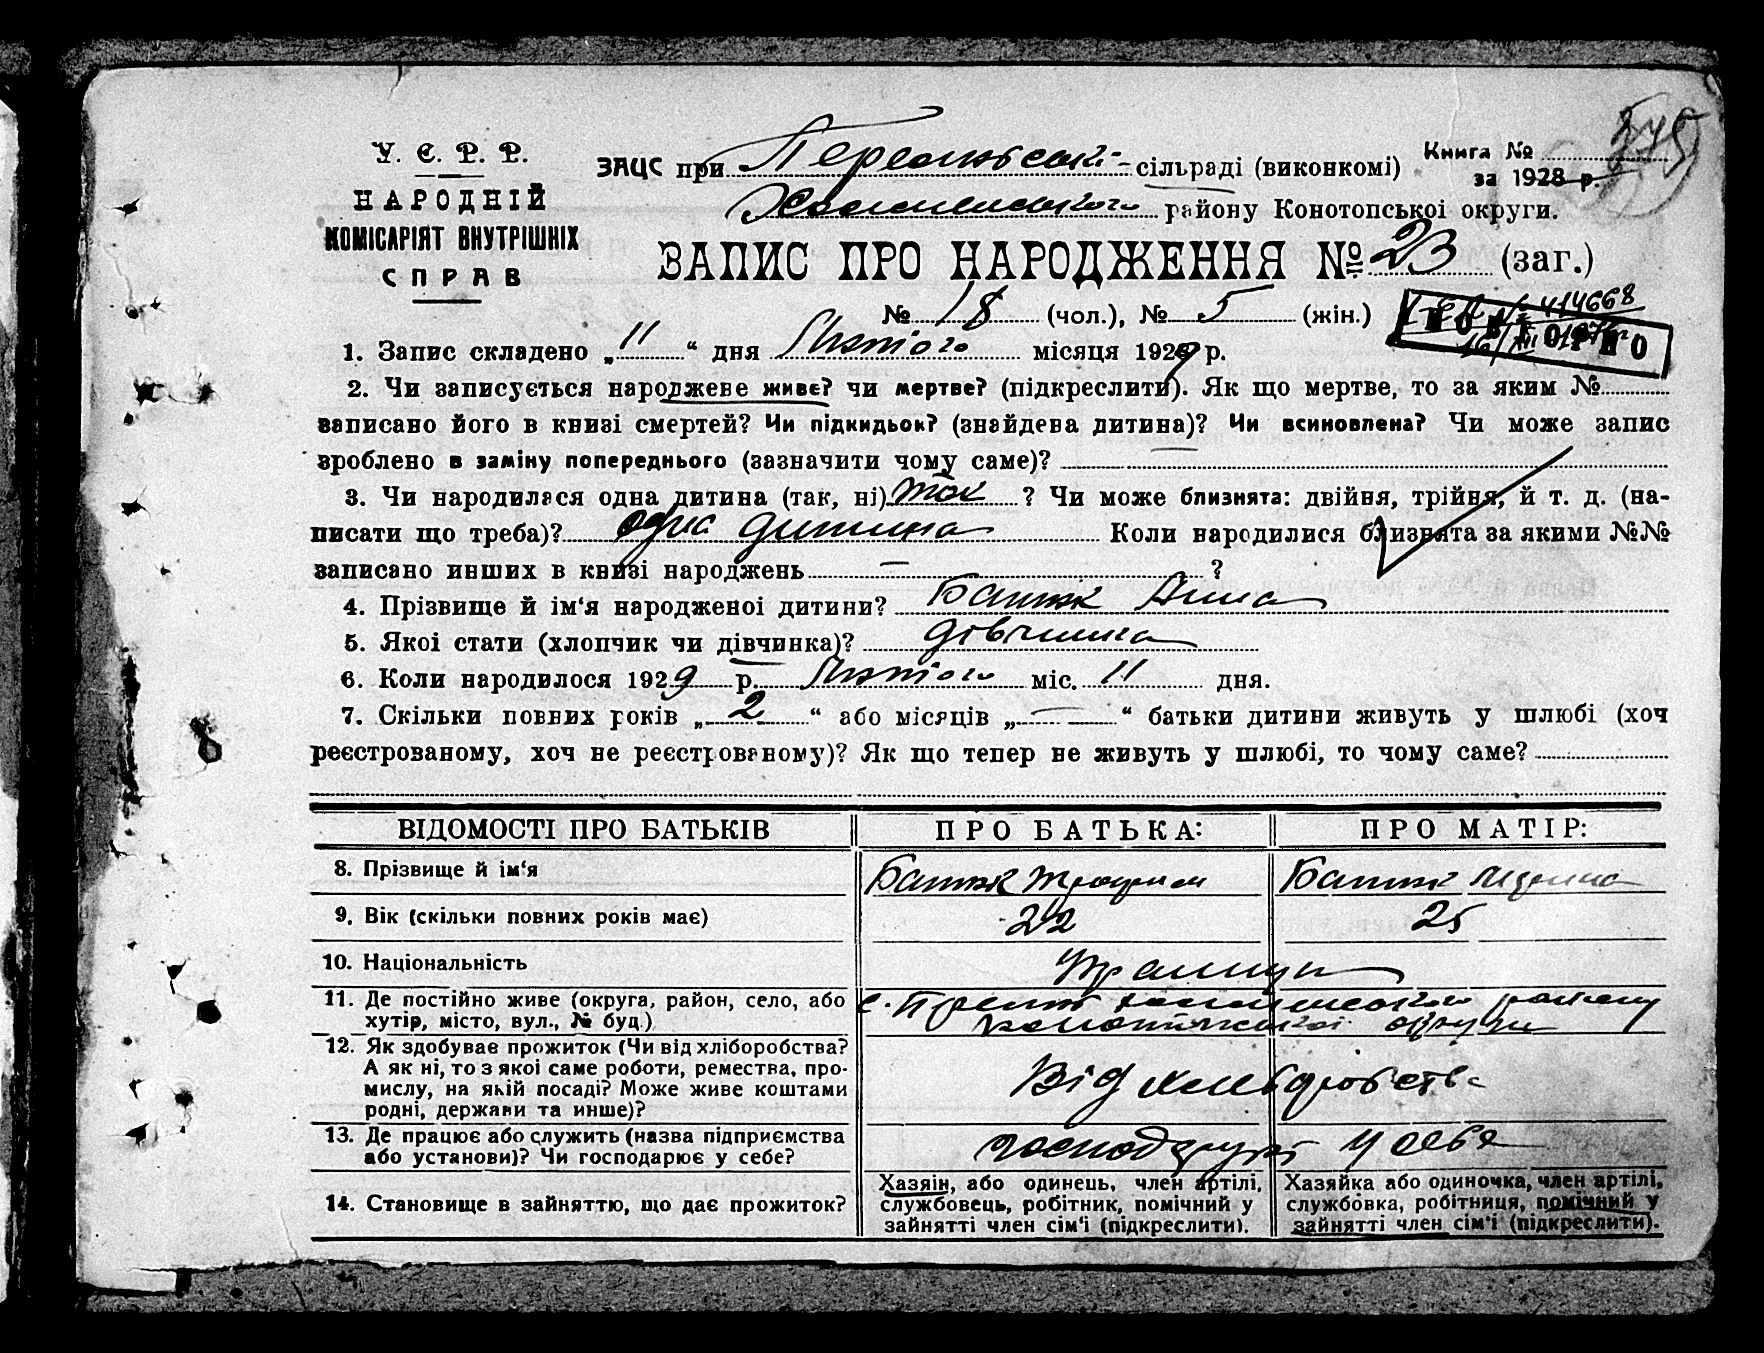 У. С. Р. Р.
НАРОДНІЙ
КОМІСАРІЯТ ВНУТРІШНІХ
СПРАВ
ЗАЦС при сільраді (виконкомі)
Книга №
за 1928 р.
району Конотопської округи.
ЗАПИС ПРО НАРОДЖЕННЯ № 23 (заг.)
№ 18 (чол.), № 5 (жін.)
414668
ПОВТОРНО
1. Запис складено „11“ дня Лютого місяця 1929 р.
2. Чи записується народжеве живе? чи мертве? (підкреслити). Як що мертве, то за яким №
записано його в книзі смертей? Чи підкидьок? (знайдева дитина)? Чи всиновлена? Чи може запис
зроблено в заміну попереднього (зазначити чому саме)?
3. Чи народилася одна дитина (так, ні) так ? Чи може близнята: двійня, трійня, й т. д. (на-
писати що треба)? одна дитина Коли народилися близнята за якими №№
записано инших в книзі народжень — ?
4. Прізвище й ім‘я народженої дитини? Батюк Анна
5. Якої стати (хлопчик чи дівчинка)? дівчинка
6. Коли народилося 1929 р. Лютого міс. 11 дня.
7. Скільки повних років „2“ або місяців „—“ батьки дитини живуть у шлюбі (хоч
реєстрованому, хоч не реєстрованому)? Як що тепер не живуть у шлюбі, то чому саме?
ВІДОМОСТІ ПРО БАТЬКІВ ПРО БАТЬКА: ПРО МАТІР:
8. Прізвище й ім‘я Батюк Трофим Батюк
9. Вік (скільки повних років має) 22 25
10. Національність Українці
11. Де постійно живе (округа, район, село, або
хутір, місто, вул., № буд.)
с. району
Конотопської округи
12. Як здобуває прожиток (Чи від хліборобства?
А як ні, то з якої саме роботи, ремества, про-
мислу, на якій посаді? Може живе коштами
родні, держави та инше)?
Від хліборобства
13. Де працює або служить (назва підприємства
або установи)? Чи господарює у себе?
господарує у себе
14. Становище в зайняттю, що дає прожиток?
Хазяін, або одинець, член артілі,
службовець, робітник, помічний у
зайнятті член сім‘ї (підкреслити).
Хазяйка або одиночка, член артілі,
службовка, робітниця, помічний у
зайнятті член сім‘ї (підкреслити).